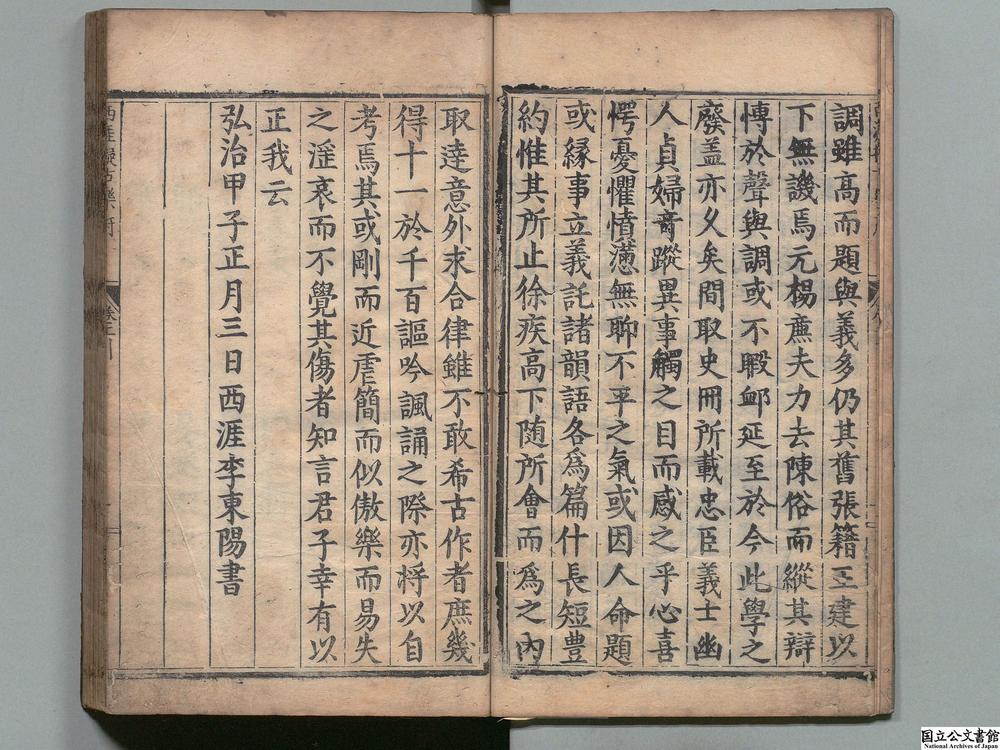 調雖高而題與義多仍其舊張籍王建以
下無譏焉元楊廉夫力去陳俗而縱其辯
博於聲與調或不暇卹延至於今此學之
廢蓋亦久矣間取史冊所載忠臣義士幽
人貞婦竒蹤異事觸之目而感之乎心喜
愕憂懼憤懣無聊不平之氣或因人命題
或縁事立義託諸韻語各爲篇什長短豊
約惟其所止徐疾高下随所會而爲之內
取逹意外求合律雖不敢希古作者庶幾
得十一於千百謳吟諷誦之際亦将以自
考焉其或剛而近虐簡而似傲樂而易失
之淫哀而不覺其傷者知言君子幸有以
正我云
弘治甲子正月三日西涯李東陽書
国立公文書館
National Archives of Japan